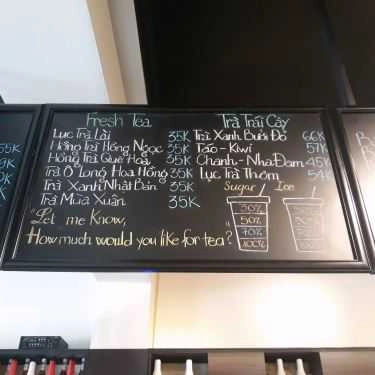 Fresh Tea
Lục Trà Lài 35K
Hồng Trà Hồng Ngọc 35K
Hồng Trà Quế Hoa 35K
Trà Ô Long Hoa Hồng 35K
Trà Xanh Nhật Bản 35K
Trà Mùa Xuân 35K
Trà Trái Cây
Trà Xanh Bưởi Đỏ 66K
Táo - Kiwi 57K
Chanh - Nha Đam 45K
Lục Trà Thơm 54K
"Let me Know,
How much would you like for tea?"
Sugar Ice
30%
50%
70%
100%
55K